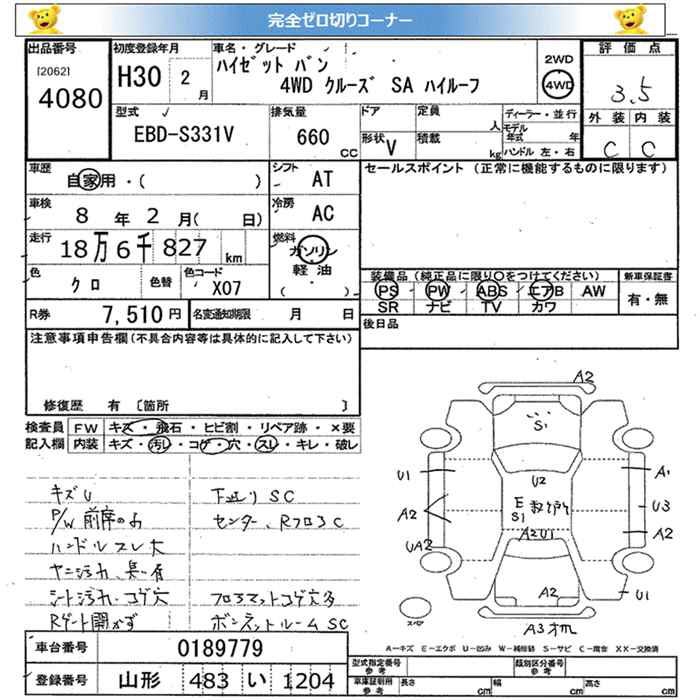 完全ゼロ切りコーナー
出品番号 初度登録年月 車名・グレード 2WD 評価点
[2062] 4080 H30 2月 ハイゼット バン 4WD クルーズ SA ハイルーフ 4WD 3.5
型式 排気量 ドア 定員 人 ディーラー・並行 外装 内装
EBD-S331V 660 CC 形状 V 積載 kg モデル年式 年 ハンドル 左・右 C C
車歴 自家用・( ) シフト AT セールスポイント (正常に機能するものに限ります)
車検 8年 2月( 日) 冷房 AC
走行 18万6千827km 燃料 ガソリン 軽油 ( )
色 クロ 色替 色コード X07 装備品(純正品に限り○をつけてください) 新車保証書
PS PW ABS エアB AW 有・無
SR ナビ TV カワ
R券 7,510円 名変通知期限 月 日 後日品
注意事項申告欄(不具合内容等は具体的に記入して下さい)
修復歴 有 〔箇所 〕
検査員 FW キズ・飛石・ヒビ割・リペア跡・×要
記入欄 内装 キズ・汚レ・コゲ・穴・スレ・キレ・破レ
キズU 下廻り SC
P/W 前席のみ センター、RフロアC
ハンドルスレ大
ヤニ汚れ、臭い有
シート汚れ・コゲ穴 フロアマットコゲ穴多
Rゲート開かず ボンネットルームSC
A2
S1
U1 U2 A1
A2 E S1 U3
UA2 A2U1 A2
A2 U1
スペア
A3
A=キズ E=エクボ U=凹み W=補修跡 S=サビ C=腐食 XX=交換済
車台番号 0189779
登録番号 山形 483 い 1204
型式指定番号 参考 類別区分番号 参考
車庫証明用 参考 長さ cm 幅 cm 高さ cm